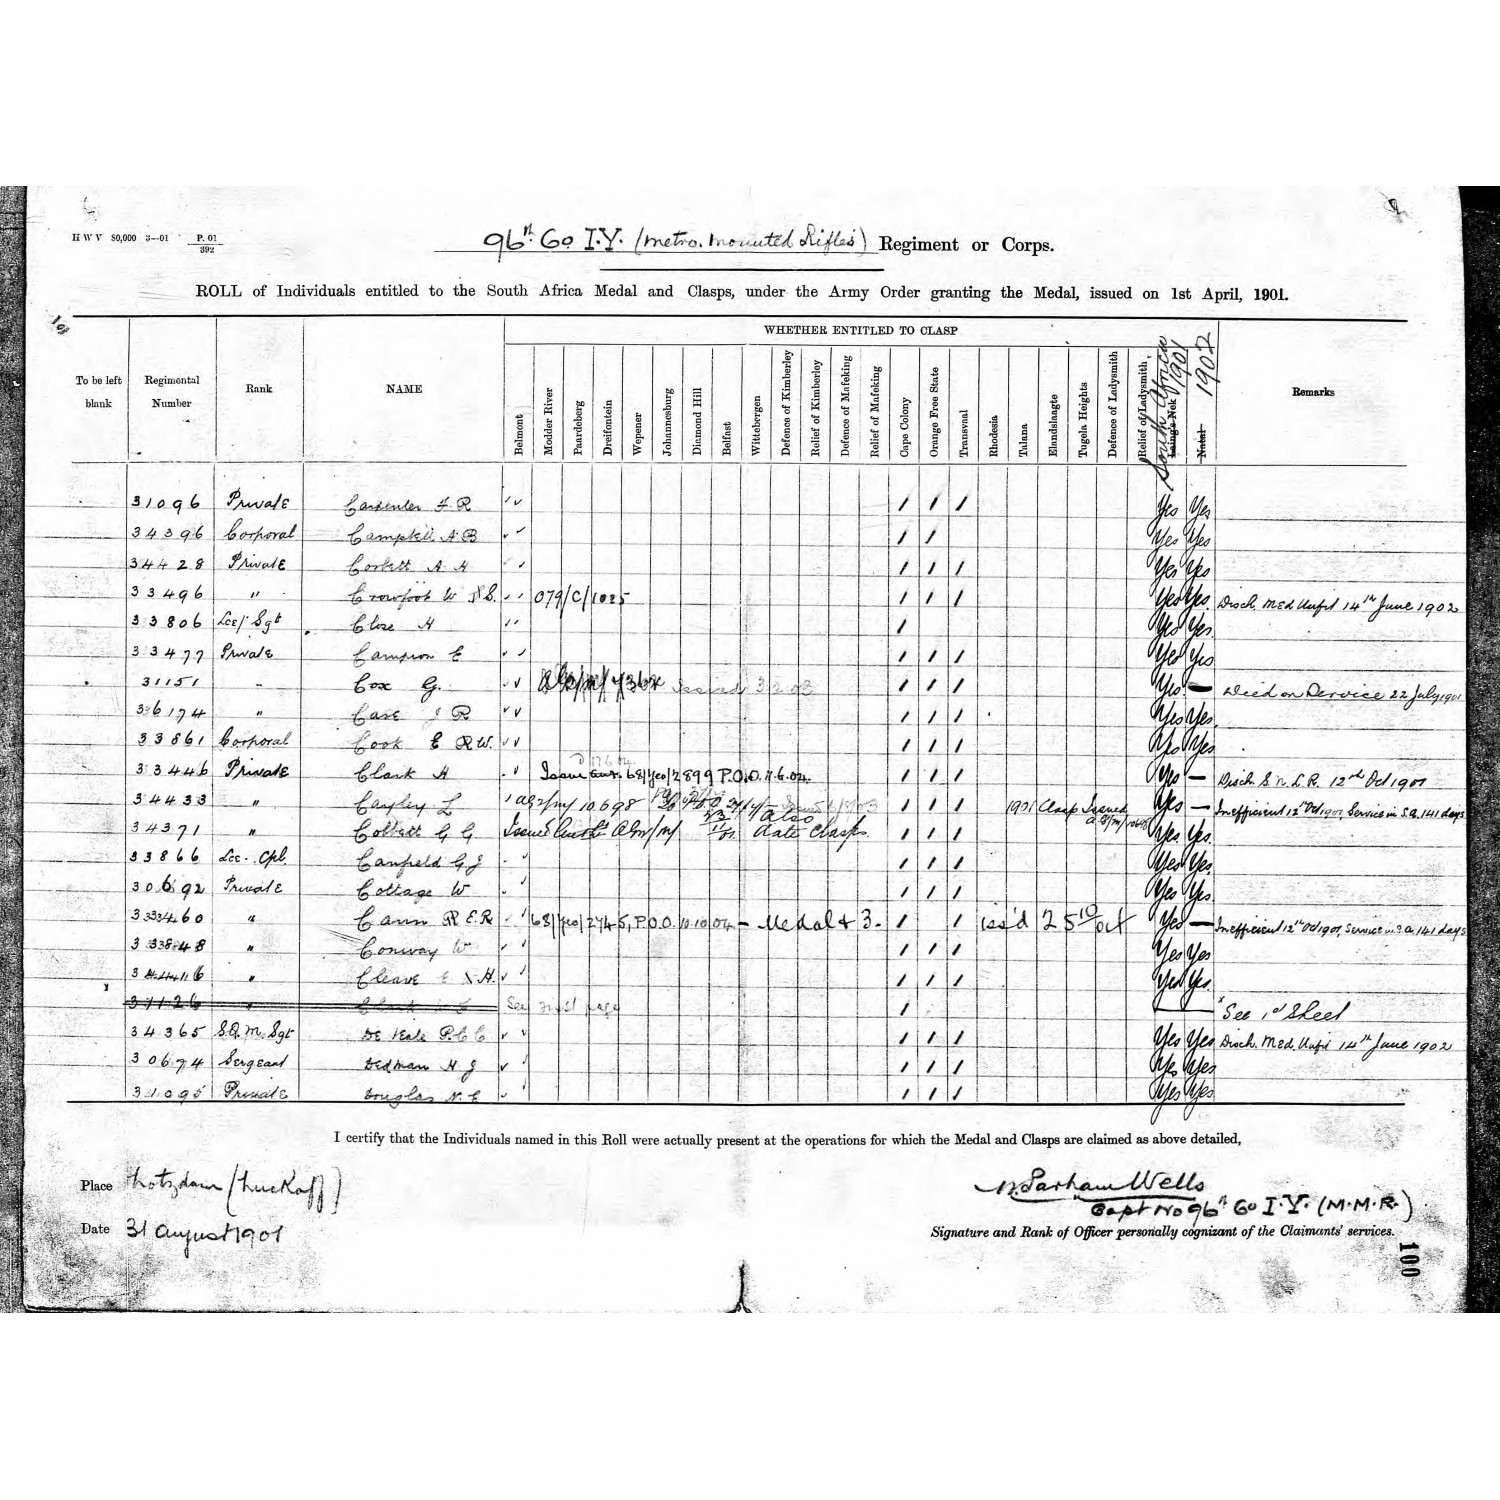 HWV 80,000 3—01 P. 01
392
96th Co I.Y. (Metro. Mounted Rifles) Regiment or Corps.
ROLL of Individuals entitled to the South Africa Medal and Clasps, under the Army Order granting the Medal, issued on 1st April, 1901.
WHETHER ENTITLED TO CLASP
To be left blank Regimental Number Rank NAME Belmont Modder River Paardeberg Dreifontein Wepener Johannesburg Diamond Hill Belfast Wittebergen Defence of Kimberley Relief of Kimberley Defence of Mafeking Relief of Mafeking Cape Colony Orange Free State Transvaal Rhodesia Talana Elandslaagte Tugela Heights Defence of Ladysmith Relief of Ladysmith Laing's Nek South Africa 1901 Natal 1902 Remarks
31096 Private Carpenter F R / / / Yes Yes
34396 Corporal Campbell A B / / Yes Yes
34428 Private Corbett A H / / / Yes Yes
33496 " Crowfoot W S. 079/C/1025 / / / Yes Yes Disch. Med. Unfit 14th June 1902
33806 Lce/Sgt Close H / Yes Yes
33477 Private Campion E / / / Yes Yes
31151 " Cox G. Issued 3 2 03 / / / Yes — Died on Service 22 July 1901
36174 " Case J R / / / Yes Yes
33861 Corporal Cook E R W. / / / Yes Yes
33446 Private Clark H Issued 68/Yeo/2899 P.O.O. 11.6.04. / / / Yes — Disch. S. N. L. R. 12th Oct 1901
34433 " Cayley L 10698 / / / 1901 Clasp Issued Yes — Inefficient 12th Oct 1901, Service in S.A. 141 days
34371 " Collett G G Issued also date Clasps. / / / Yes Yes
33866 Lce. Cpl. Canfield G J / / / Yes Yes
30692 Private Cottage W / / / Yes Yes
33460 " Cann R E R 68/Yeo/2745, P.O.O. 10.10.04 — Medal & 3. / / iss'd 25 10/04 Yes — Inefficient 12th Oct 1901, Service in S.A. 141 days
33848 " Conway W / / / Yes Yes
34416 " Cleave E H. / / / Yes Yes
37126 " Clark See first page / See 1st Sheet
34365 S.Q.M. Sgt P C C / / / Yes Yes Disch. Med. Unfit 14th June 1902
30674 Sergeant Dedman H J / / / Yes Yes
31095 Private Douglas N. E / / / Yes Yes
I certify that the Individuals named in this Roll were actually present at the operations for which the Medal and Clasps are claimed as above detailed,
Place (Luckoff)
Larham Wells
Capt No 96th Co I.Y. (M.M.R.)
Date 31 August 1901
Signature and Rank of Officer personally cognizant of the Claimants' services.
100